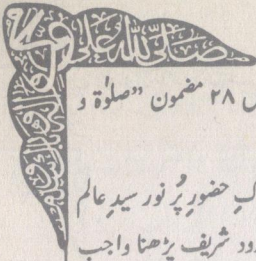 صلی اللہ علی
س ۲۸ مضمون ”صلوٰۃ و
کِ حضورِ پُر نور سیدِ عالم
ود شریف پڑھنا واجب